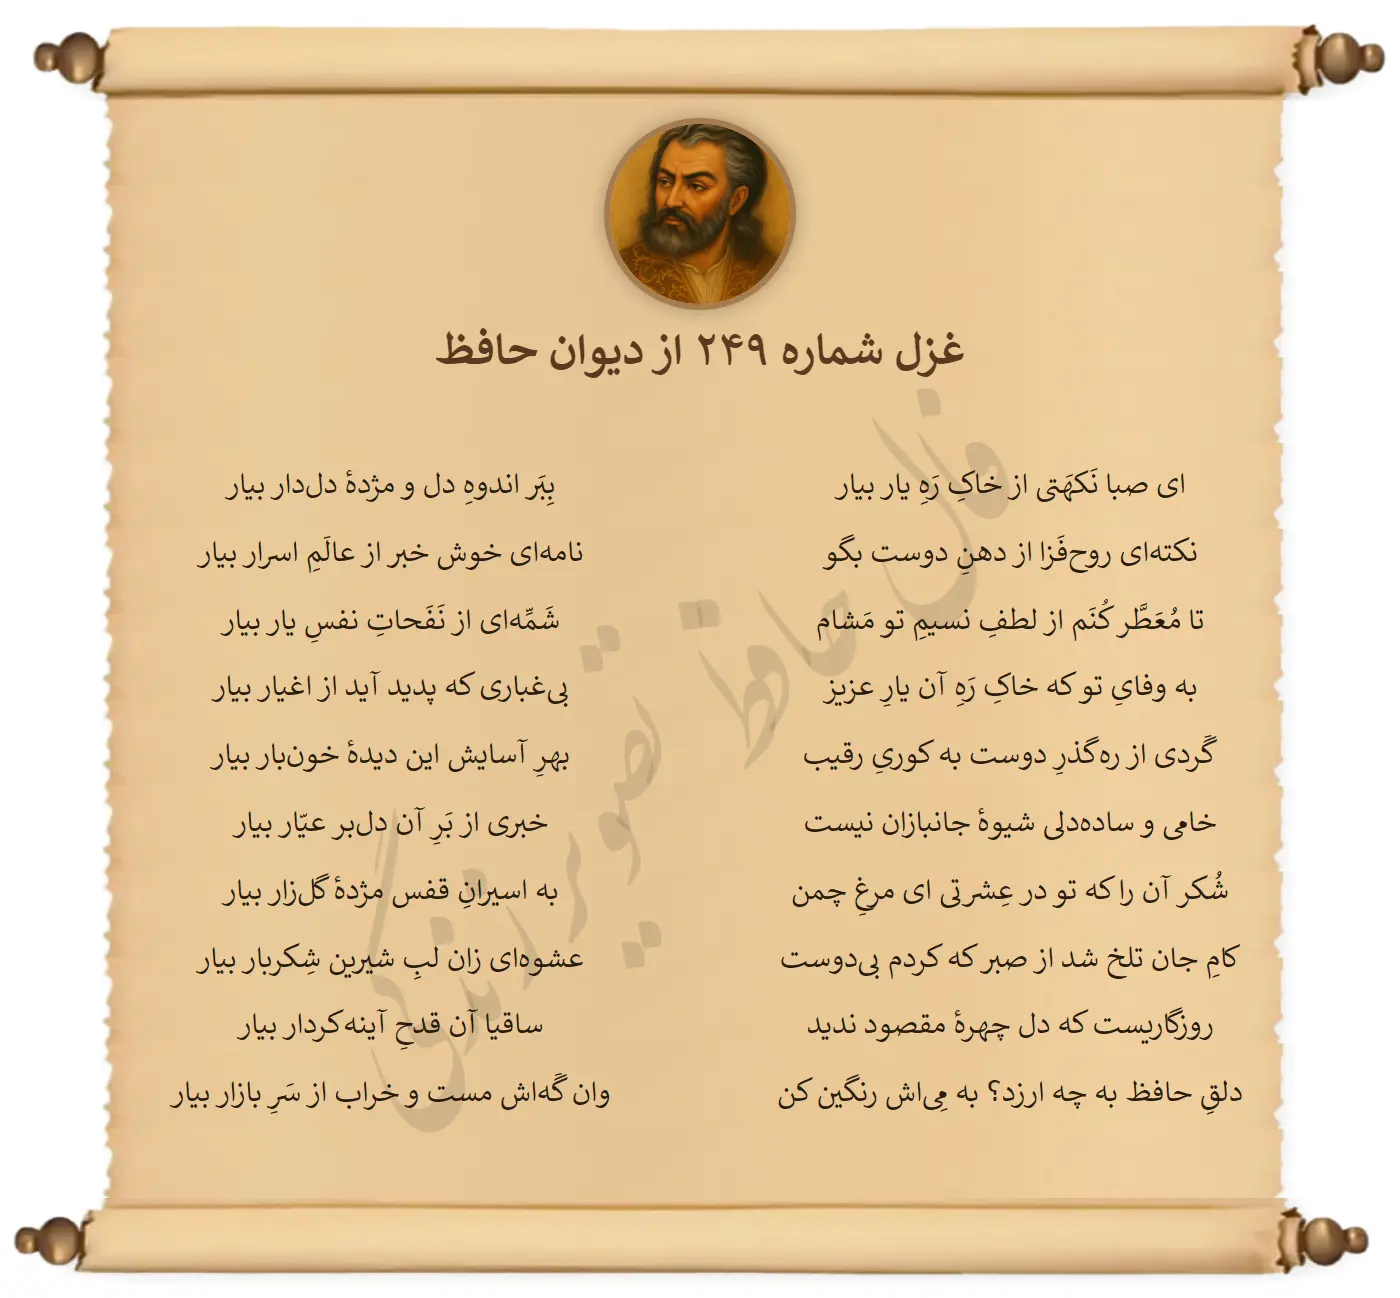 غزل شماره ۲۴۹ از دیوان حافظ
ای صبا نَکهَتی از خاکِ رَهِ یار بیار بِبَر اندوهِ دل و مژدهٔ دل‌دار بیار
نکته‌ای روح‌فَزا از دهنِ دوست بگو نامه‌ای خوش خبر از عالَمِ اسرار بیار
تا مُعَطَّر کُنَم از لطفِ نسیمِ تو مَشام شَمِّه‌ای از نَفَحاتِ نفسِ یار بیار
به وفایِ تو که خاکِ رَهِ آن یارِ عزیز بی‌غباری که پدید آید از اغیار بیار
گَردی از ره‌گذرِ دوست به کوریِ رقیب بهرِ آسایش این دیدهٔ خون‌بار بیار
خامی و ساده‌دلی شیوهٔ جانبازان نیست خبری از بَرِ آن دل‌بر عیّار بیار
شُکر آن را که تو در عِشرتی ای مرغِ چمن به اسیرانِ قفس مژدهٔ گل‌زار بیار
کامِ جان تلخ شد از صبر که کردم بی‌دوست عشوه‌ای زان لبِ شیرین شِکربار بیار
روزگاریست که دل چهرهٔ مقصود ندید ساقیا آن قدحِ آینه‌کردار بیار
دلقِ حافظ به چه ارزد؟ به مِی‌اش رنگین کن وان گَه‌اش مست و خراب از سَرِ بازار بیار
فال حافظ تصویر زندگی